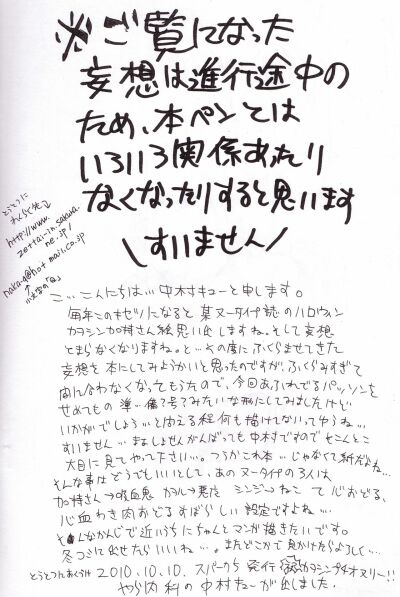 ※ご覧になった
妄想は進行途中の
ため、本ペンとは
いろいろ関係あったり
なくなったりすると思います
\すいません/
とうとつに
れんらく先↓
http://www.
zettai-in.sakura.
ne.jp/
naka-q@hotmail.co.jp
↑
小文字の「q」
こ…こんにちは…中村キューと申します。
毎年このキセツになると某ヌータイプ誌のハロウィン
カヲシン加持さん絵思い出しますね。そして妄想
とまらなくなりますね。と…その度にふくらませてきた
妄想を本にしてみようかいと思ったのですが、ふくらみすぎて
間に合わなくなってもうたので、今回あふれでるパッションを
せめてもの準…備?号?みたいな形にしてみましたけど
いかがでしょう…とゆえる程何も描けてないってゆうね…
すいません…ましょせんがんばっても中村ですのでそこんとこ
大目に見てやって下さい…。つうかこれ本…じゃなくて紙だよね…
そんな事はどうでもいいとして、あのヌータイプの3人は
加持さん→吸血鬼 カヲル→悪魔 シンジ→ねこ て心おどる、
心血わき肉おどるすばらしい設定ですよね…
そんなかんじで近いうちにちゃんとマンが描きたいです。
冬つごで出せたらいいね…。またどこかで見かけたらよろしく…
とうとつにおくづけ 2010.10.10. スパークら発行 カヲシンプチオメリー!!
やら内科の中村キューが出しました。